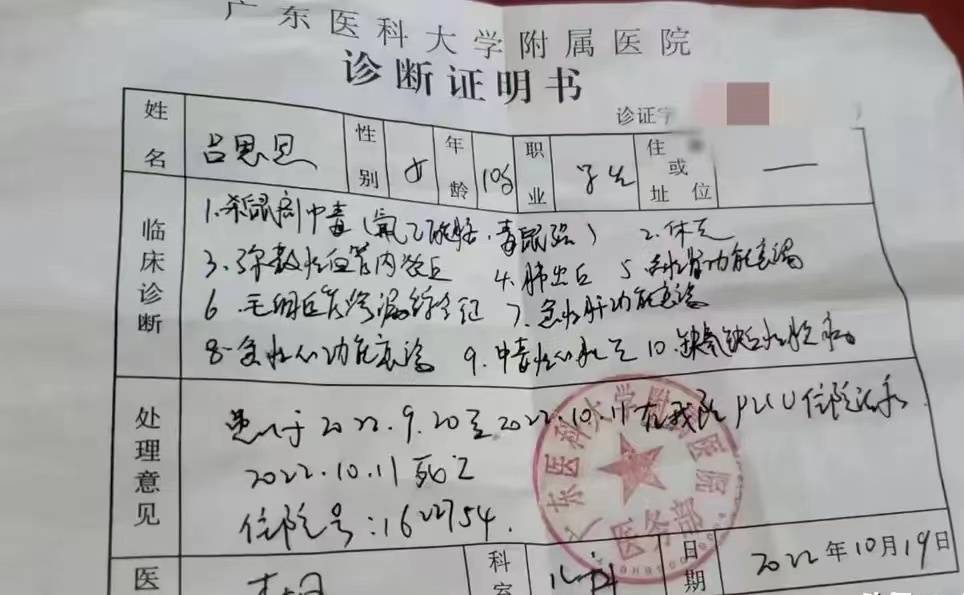 广东医科大学附属医院
诊断证明书
诊证字
姓名 吕思恩 性别 女 年龄 10岁 职业 学生 住或单位址 —
临床诊断 1.杀鼠剂中毒(氟乙酰胺、毒鼠强) 2.休克
3.弥散性血管内凝血 4.肺出血 5.急性肾功能衰竭
6.毛细血管渗漏综合征 7.急性肝功能衰竭
8.急性心功能衰竭 9.中毒性心肌炎 10.缺氧缺血性脑病
处理意见 患儿于2022.9.20至2022.10.11在我院PICU住院治疗.
2022.10.11死亡
住院号:1622754.
广东医科大学附属医院
医务部
医 科室 儿科 日期 2022年10月19日